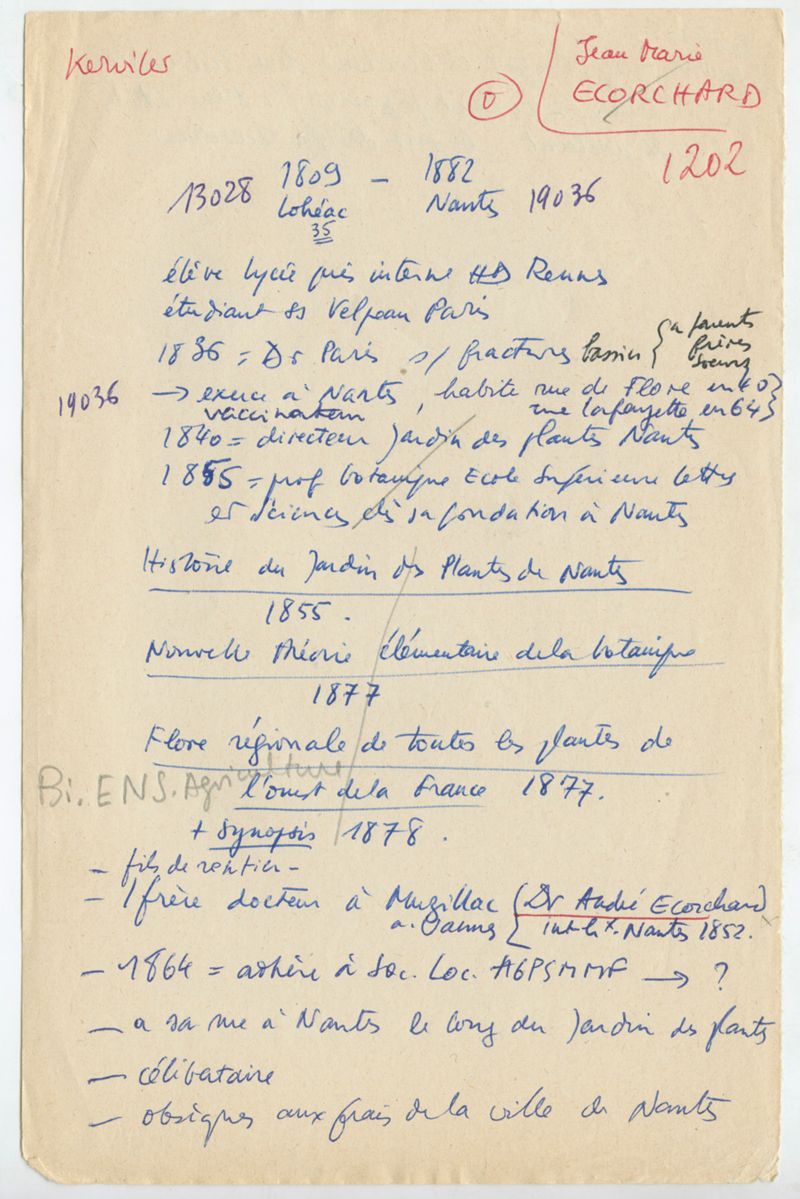 Kerviler
Jean Marie
ECORCHARD
1202
13028 1809 - 1882
Lohéac Nantes 19036
35
élève lycée puis interne HD Rennes
étudiant ss Velpeau Paris
1836 = Dr Paris s/ fractures bassin { a parents
frères
soeurs
19036 → exerce à Nantes, habite rue de Flore en 40 }
vaccination rue Lafayette en 64 }
1840 = directeur Jardin des plantes Nantes
1855 = prof botanique Ecole Supérieure lettres
et Sciences dès sa fondation à Nantes
Histoire du Jardin des Plantes de Nantes
1855.
Nouvelle théorie élémentaire de la botanique
1877
Flore régionale de toutes les plantes de
Bi. ENS. Agriculture
l'ouest de la France 1877.
+ Synopsis 1878.
- fils de rentier -
- 1 frère docteur à Muzillac (Dr André Ecorchard)
a. Vannes { int. hx. Nantes 1852.
- 1864 = adhère à Soc. Loc. AGPSMMF → ?
- a sa rue à Nantes le long du Jardin des plantes
- célibataire
- obsèques aux frais de la ville de Nantes